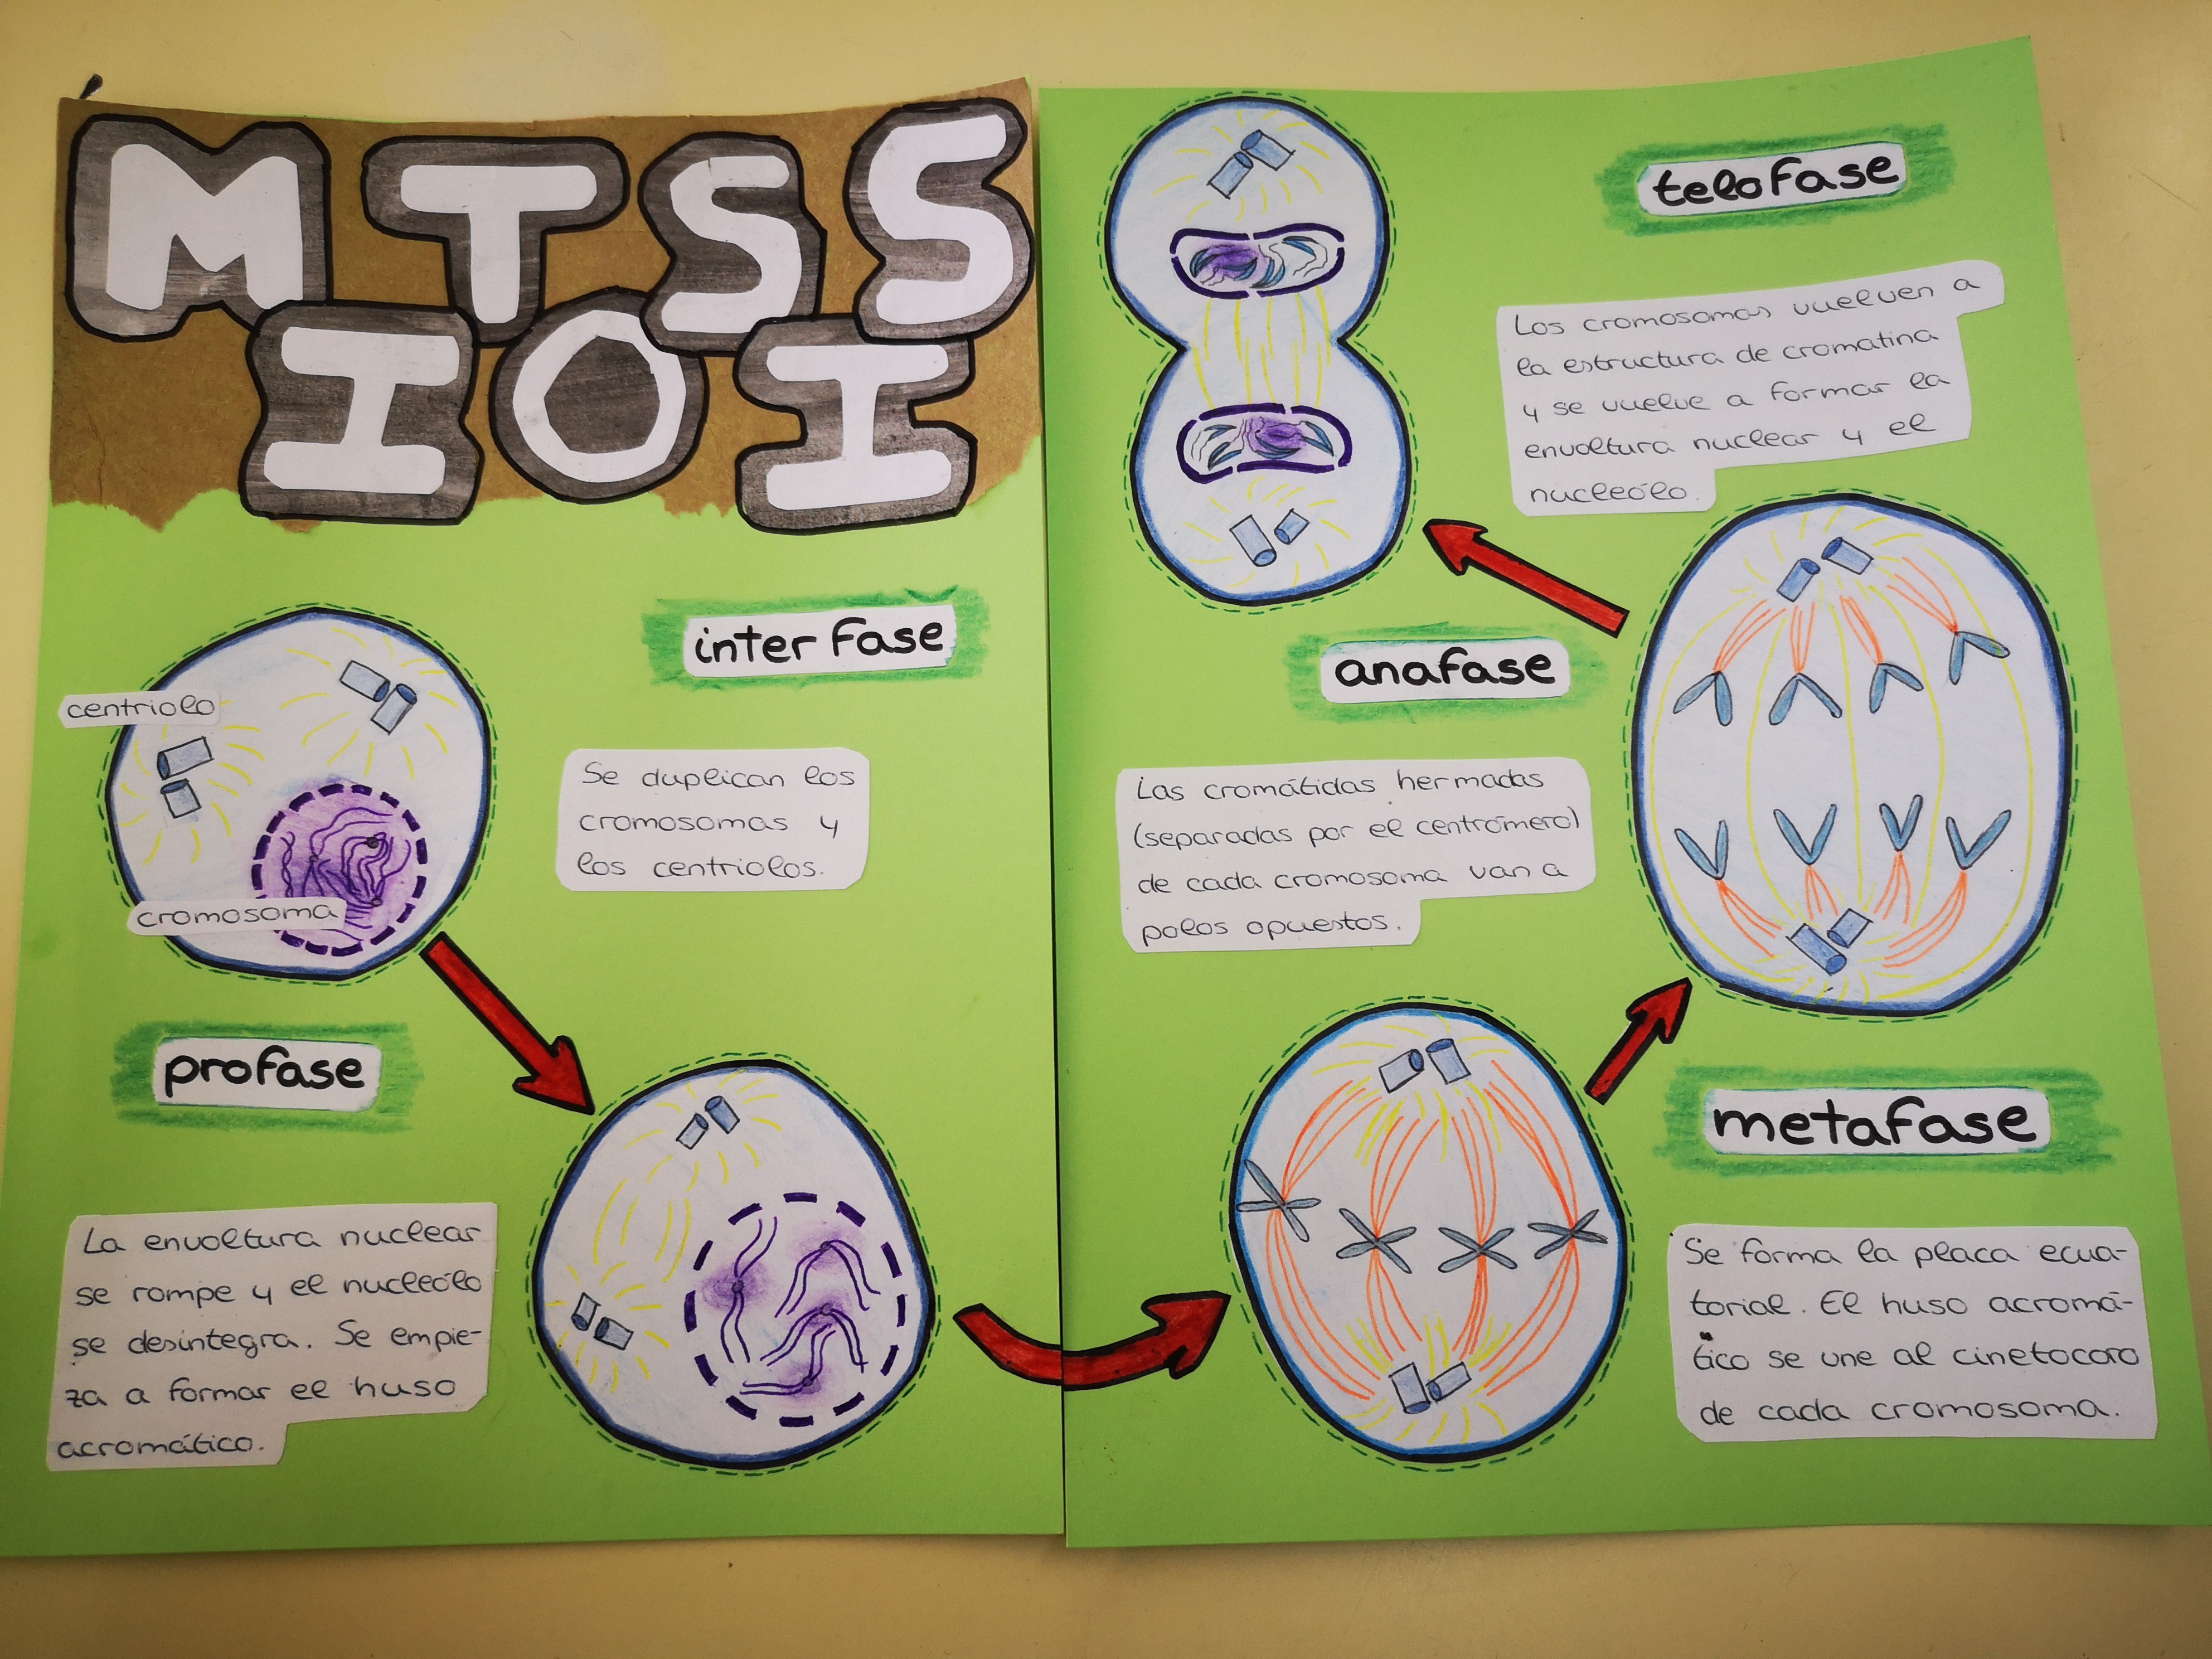 MITOSIS
interfase
centriolo
cromosoma
Se duplican los
cromosomas y
los centriolos.
profase
La envoltura nuclear
se rompe y el nucleólo
se desintegra. Se empie-
za a formar el huso
acromático.
metafase
Se forma la placa ecua-
torial. El huso acromá-
tico se une al cinetocoro
de cada cromosoma.
anafase
Las cromátidas hermadas
(separadas por el centrómero)
de cada cromosoma van a
polos opuestos.
telofase
Los cromosomas vuelven a
la estructura de cromatina
y se vuelve a formar la
envoltura nuclear y el
nucleólo.